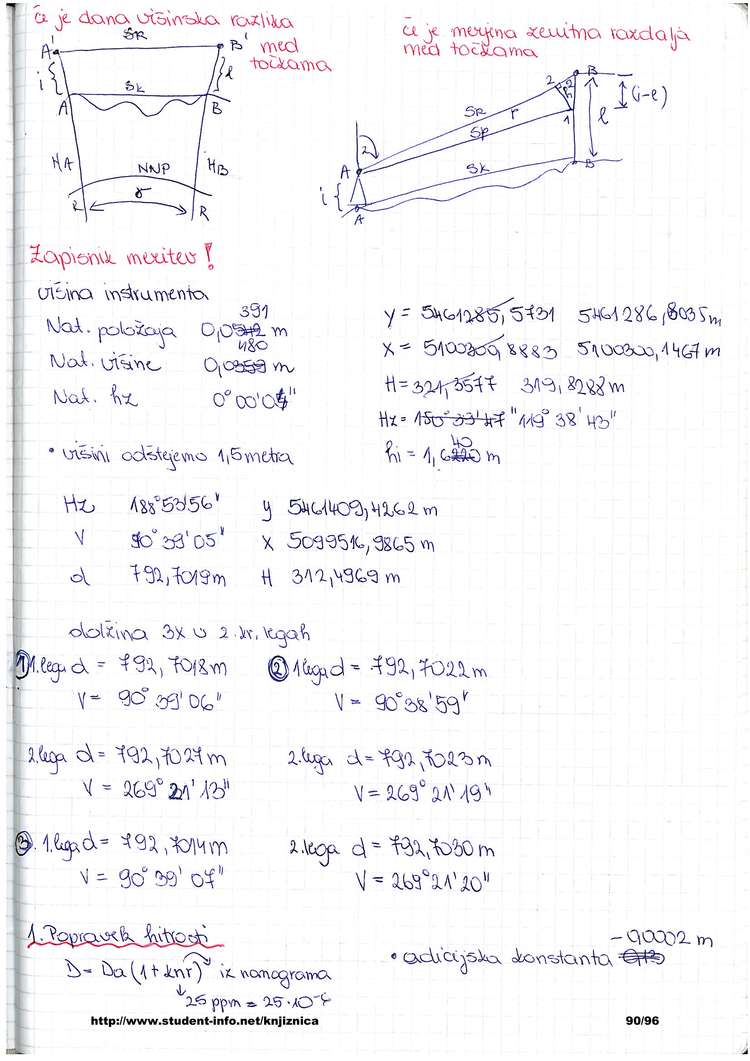 če je dana višinska razlika
med
točkama
SR
A' B'
i l
SK
A B
HA NNP HB
γ
R R
če je merjena zenitna razdalja
med točkama
2 B
(i-l)
SR r
1 l
Sp
z
A
SK B
i
A
Zapisnik meritev!
višina instrumenta
391
Nat. položaja 0,0512 m
480
Nat. višine 0,0359 m
Nat. hz 0°00'04"
• višini odštejemo 1,5 metra
y = 5461285,5731 5461286,8035 m
x = 5100300,8883 5100300,1467 m
H = 321,3577 319,8288 m
Hz = 150°39'47" 119°38'43"
40
hi = 1,6220 m
Hz 188°53'56" y 5461409,4262 m
V 90°39'05" x 5099516,9865 m
d 792,7019 m H 312,4969 m
dolžina 3x v 2. kr. legah
① 1. lega d = 792,7018 m ② 1 lega d = 792,7022 m
V = 90°39'06" V = 90°38'59"
2. lega d = 792,7027 m 2. lega d = 792,7023 m
V = 269°21'13" V = 269°21'19"
③. 1. lega d = 792,7014 m 2. lega d = 792,7030 m
V = 90°39'07" V = 269°21'20"
1. Popravek hitrosti
-0,0002 m
• adicijska konstanta
D = Da (1 + knr) iz nanograma
25 ppm = 25·10⁻⁶
http://www.student-info.net/knjiznica 90/96